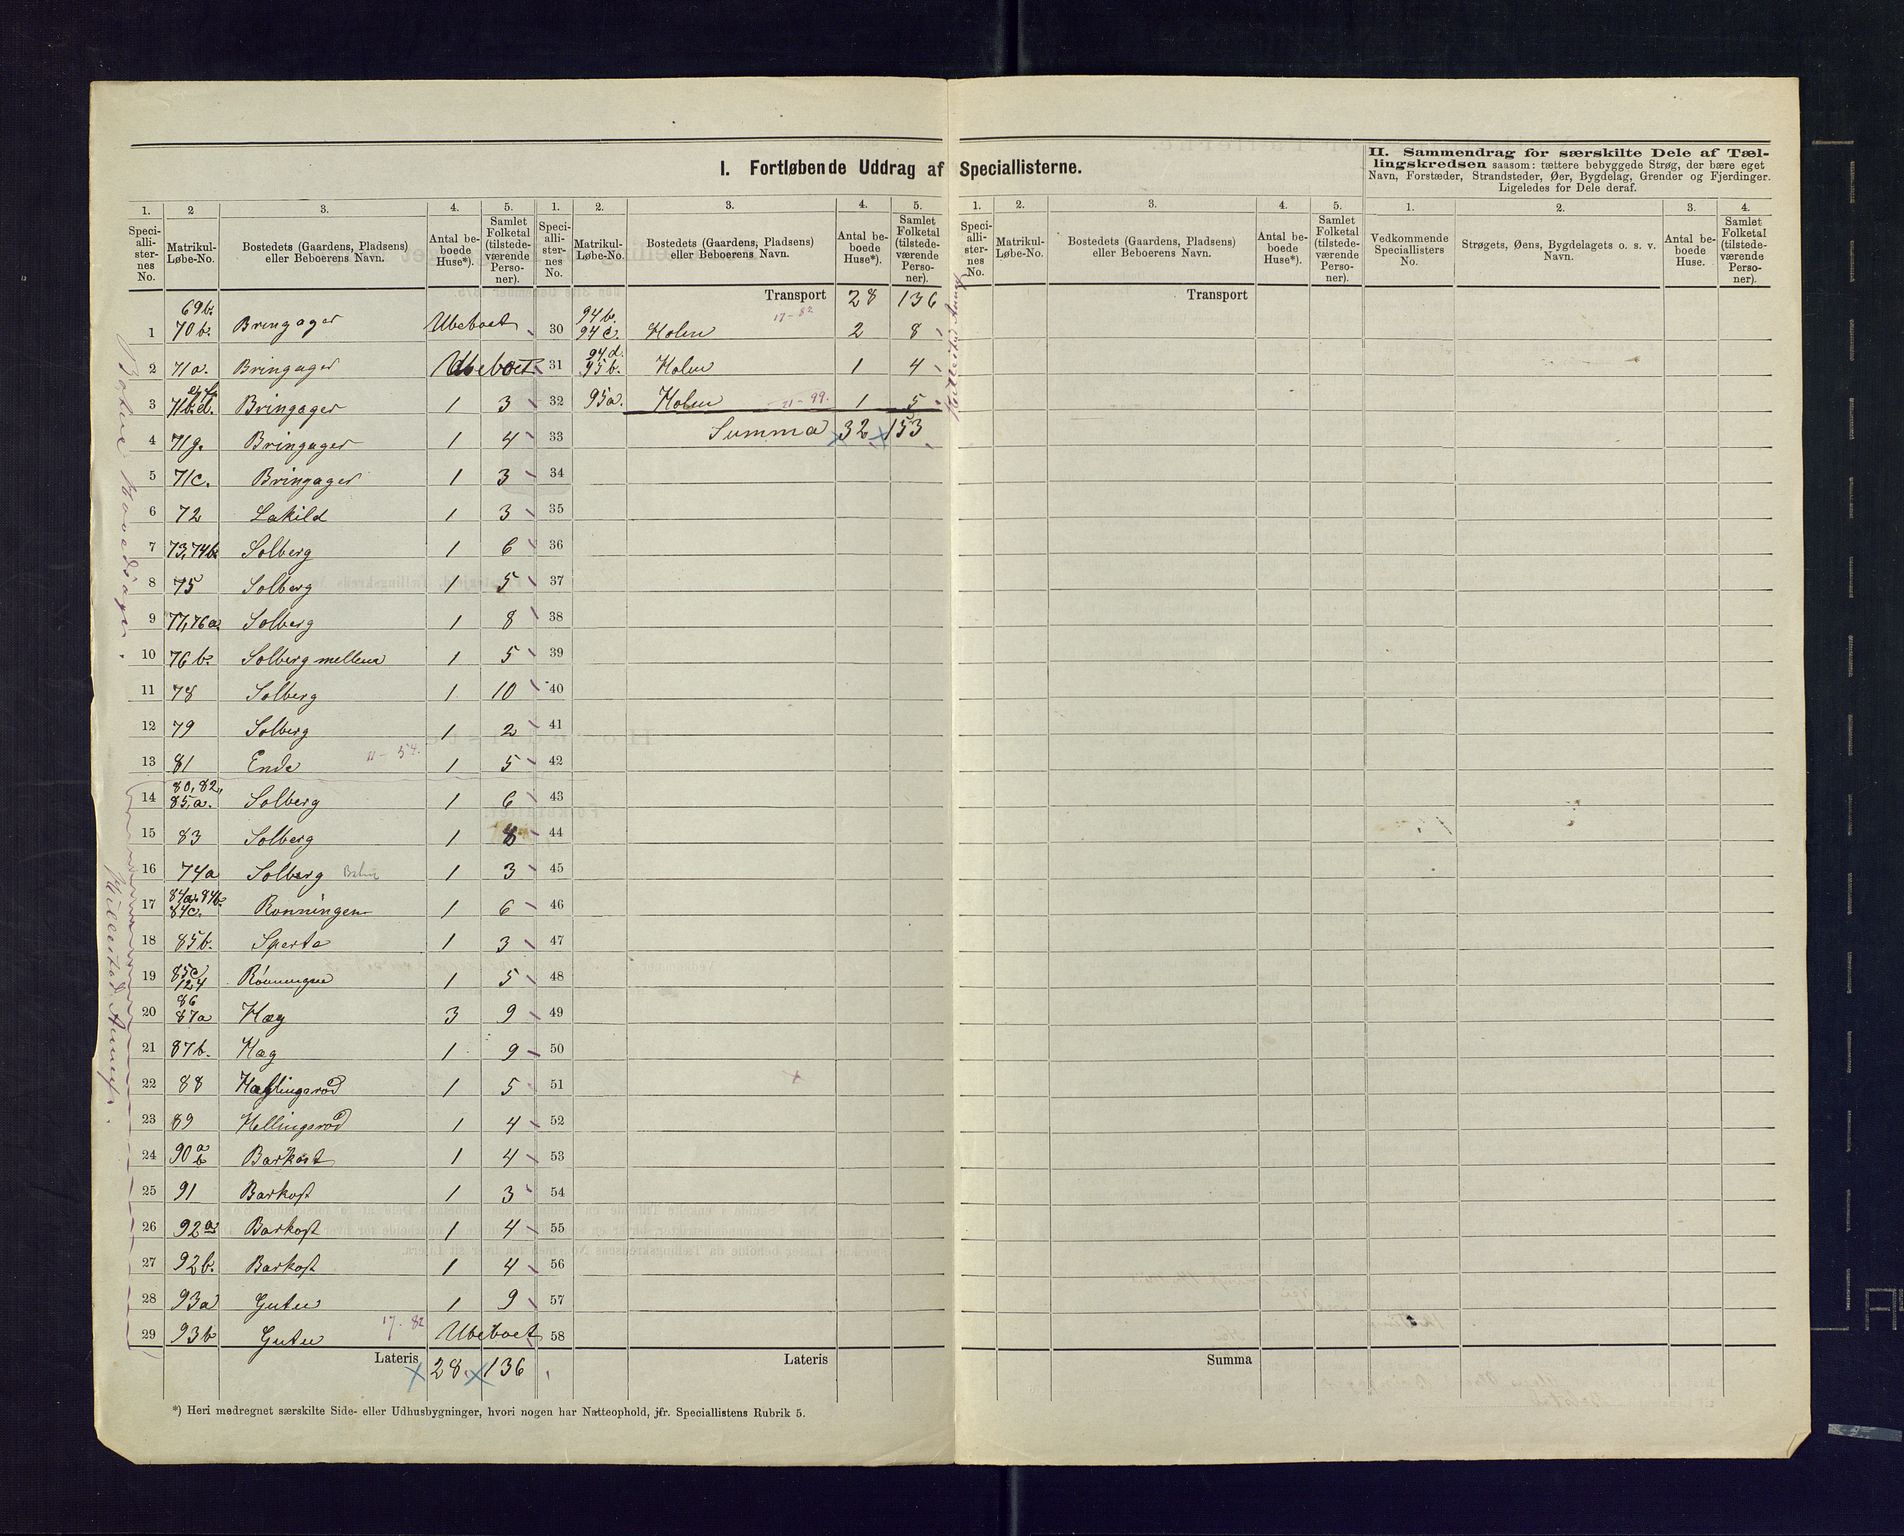 I. Fortløbende Uddrag af Speciallisterne.
II. Sammendrag for særskilte Dele af Tællingskredsen saasom: tættere bebyggede Strøg, der bære eget
Navn, Forstæder, Strandsteder, Øer, Bygdelag, Grender og Fjerdinger.
Ligeledes for Dele deraf.
1. 2 3. 4. 5. 1. 2. 3. 4. 5. 1. 2. 3. 4. 5. 1. 2. 3. 4.
Speciallisternes No. Matrikul-Løbe-No. Bostedets (Gaardens, Pladsens) eller Beboerens Navn. Antal beboede Huse*). Samlet Folketal (tilstedeværende Personer).
Speciallisternes No. Matrikul-Løbe-No. Bostedets (Gaardens, Pladsens) eller Beboerens Navn. Antal beboede Huse*). Samlet Folketal (tilstedeværende Personer).
Speciallisternes No. Matrikul-Løbe-No. Bostedets (Gaardens, Pladsens) eller Beboerens Navn. Antal beboede Huse*). Samlet Folketal (tilstedeværende Personer).
Vedkommende Speciallisters No. Strøgets, Øens, Bygdelagets o. s. v. Navn. Antal beboede Huse. Samlet Folketal (tilstedeværende Personer).
1 69b. 70b. Bringager Ubeboet
2 71a. Bringager Ubeboet
3 71b.d. Bringager 1 3
4 71g. Bringager 1 4
5 71c. Bringager 1 3
6 72 Lakild 1 3
7 73,74b. Solberg 1 6
8 75 Solberg 1 5
9 77,76a. Solberg 1 8
10 76b. Solberg mellem 1 5
11 78 Solberg 1 10
12 79 Solberg 1 2
13 81 Ende 11-54. 1 5
14 80,82, 85.a. Solberg 1 6
15 83 Solberg 1 8
16 74a Solberg 1 3
17 84a.84b. 84c. Ronningen 1 6
18 85b. Sperta 1 3
19 85c, 124 Rönningen 1 5
20 86 87a Hæg 3 9
21 87b. Hæg 1 9
22 88 Hellingsrød 1 5
23 89 Hellingsrød 1 4
24 90 a b Barkost 1 4
25 91 Barkost 1 3
26 92a Barkost 1 4
27 92b. Barkost 1 4
28 93a Guteu 1 9
29 93b Guteu 17-82 Ubeboet
Lateris 28. 136
Transport 28 136
17-82
30 94b. 94c. Holen 2 8
31 94d. 95b. Holen 1 4
32 95a. Holen 11-99. 1 5
33 Summa 32 153
34
35
36
37
38
39
40
41
42
43
44
45
46
47
48
49
50
51
52
53
54
55
56
57
58
Lateris
Transport
Summa
*) Heri medregnet særskilte Side- eller Udhusbygninger, hvori nogen har Natteophold, jfr. Speciallistens Rubrik 5.